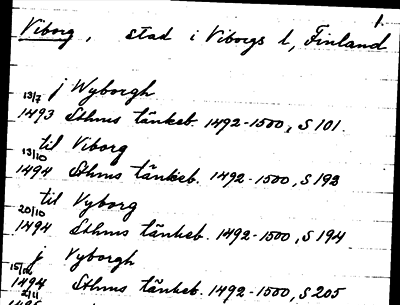 1.
Viborg, stad i Viborgs l, Finland
j Wyborgh
13/7
1493 Sthms tänkeb. 1492-1500, S 101.
til Viborg
13/10
1494 Sthms tänkeb. 1492-1500, S 193
til Vyborg
20/10
1494 Sthms tänkeb. 1492-1500, S 194
j Vyborgh
1494 Sthms tänkeb. 1492-1500, S 205